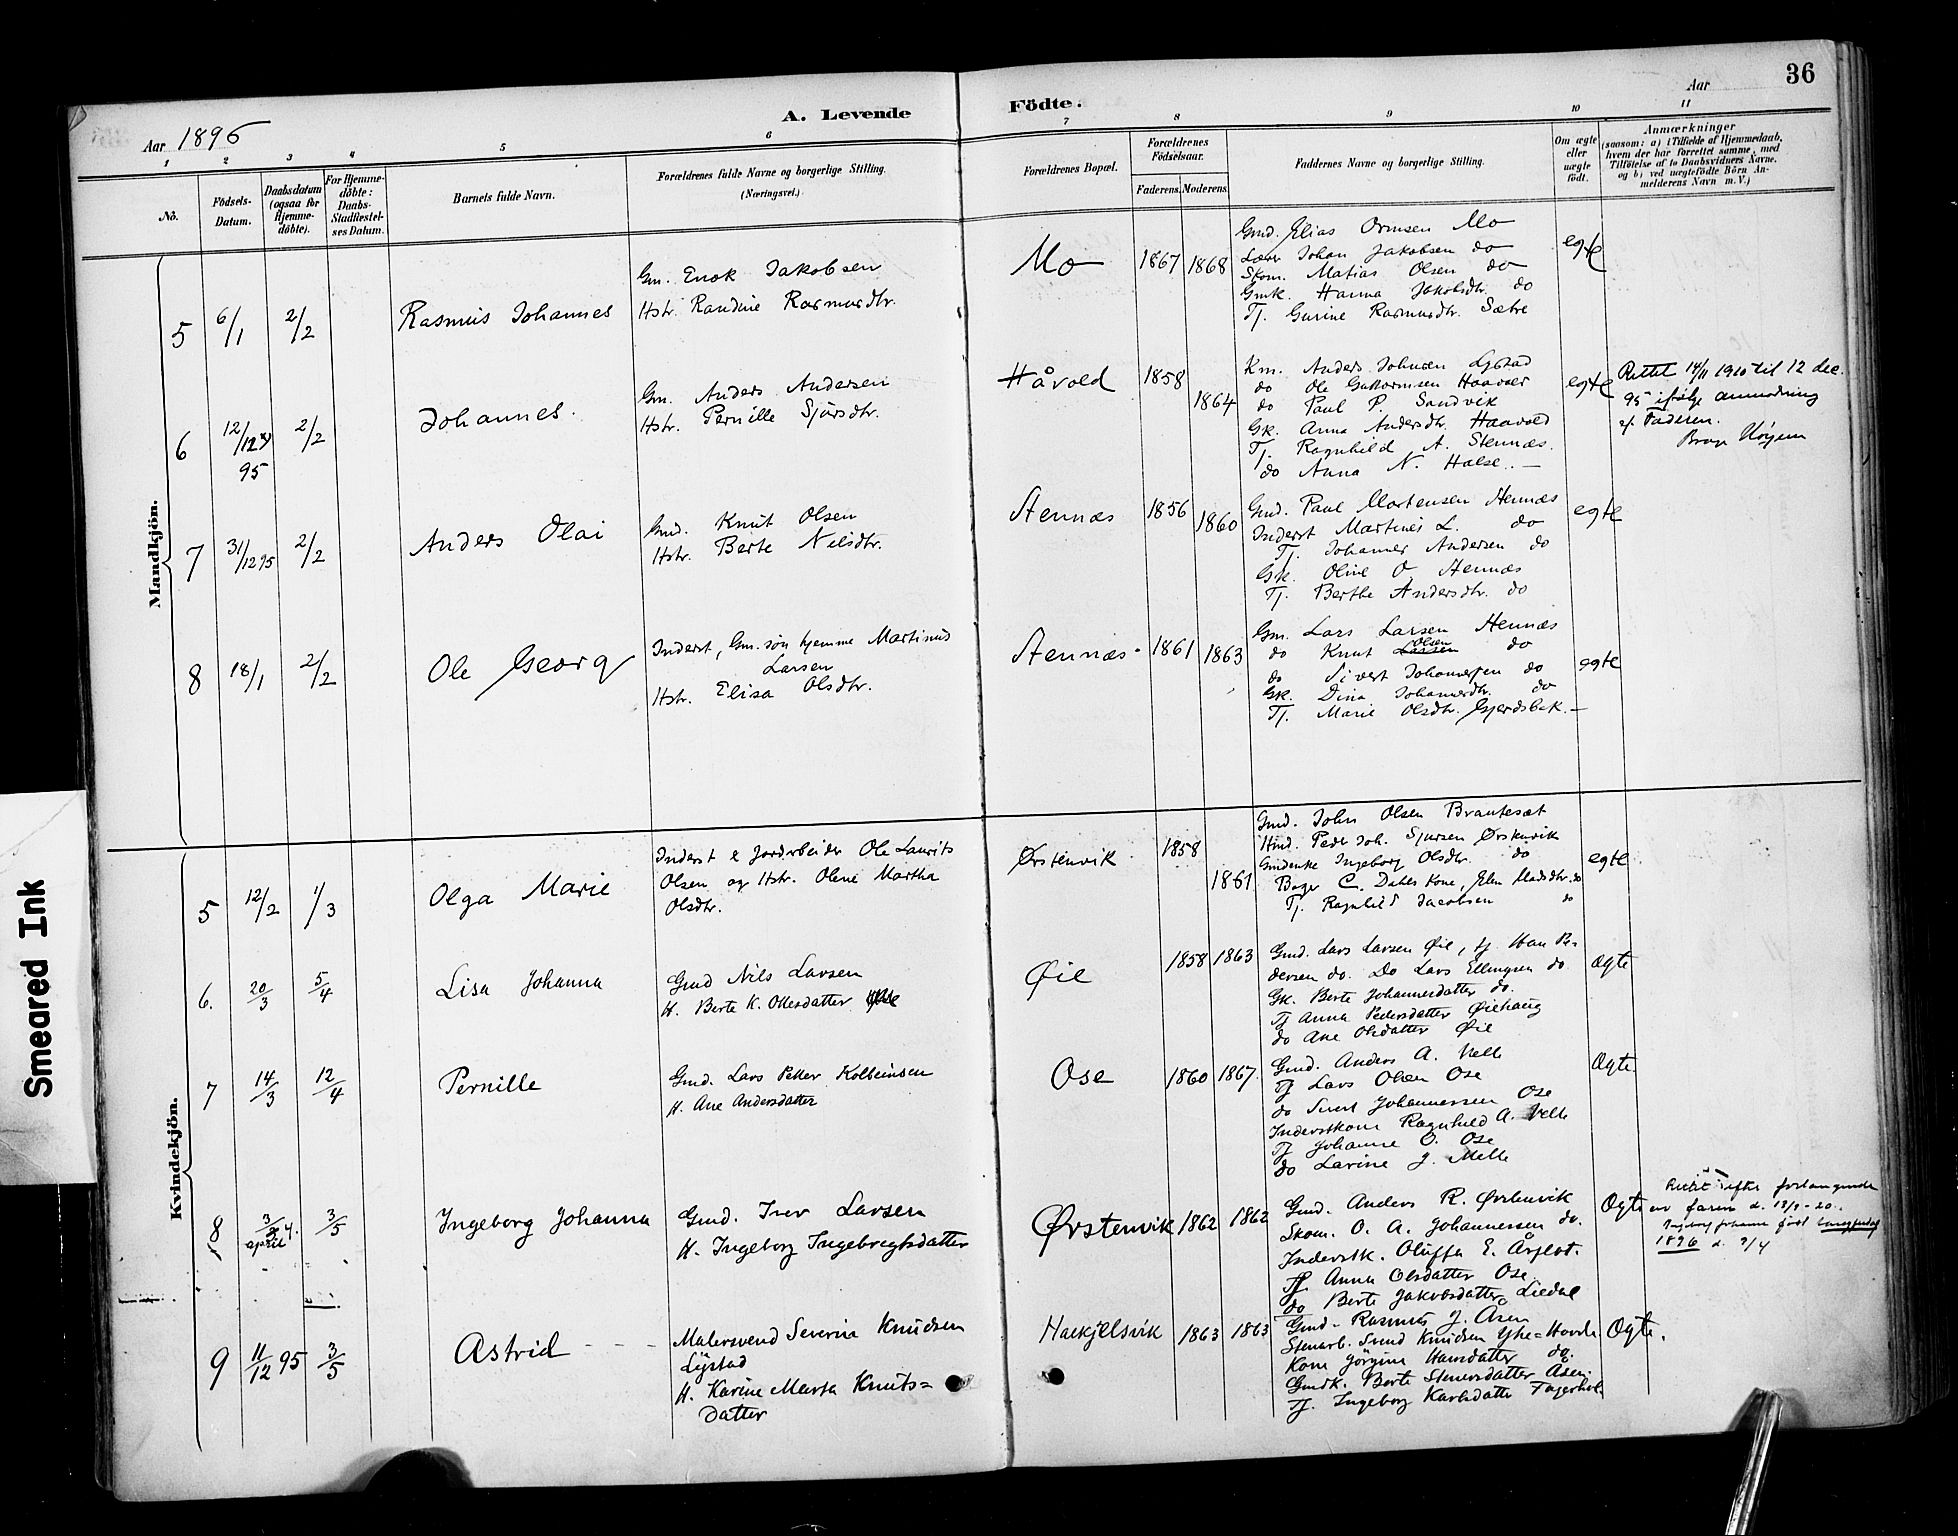 36
Aar 1896
A. Levende Födte.
Aar
1 2 3 4 5 6 7 8 9 10 11
No.
Födsels-Datum.
Daabsdatum (ogsaa for Hjemmedöbte).
For Hjemmedöbte: Daabs-Stadfæstelses Datum.
Barnets fulde Navn.
Forældrenes fulde Navne og borgerlige Stilling.
(Næringsvei.)
Forældrenes Bopæl.
Forældrenes Födselsaar.
Faderens. Moderens.
Faddernes Navne og borgerlige Stilling.
Om ægte eller uægte født.
Anmærkninger
(saasom: a) i Tilfælde af Hjemmedaab, hvem der har forrettet samme, med Tilföielse af to Daabsvidners Navne, og b) ved uægtefödte Börn Anmelderens Navn m. V.)
Mandkjön.
5 6/1 2/2 Rasmus Johannes
Gm. Enok Jakobsen
Hstr. Randine Rasmusdtr.
Mo 1867 1868
Gmd. Elias Ormsen Mo
Johan Jakobsen do
Skom. Matias Olsen do
Gmk. Hanna Jakobsdtr. do
Tj. Gurine Rasmusdtr. Sætre
egte
6 12/12 95 2/2 Johannes.
Gm. Anders Andersen
Hstr. Pernille Sjursdtr.
Håvold 1858 1864
Km. Anders Johnsen Lystad
do Ole Haavoer
do Paul P. Sandvik
Gk. Anna Andersdtr. Haavold
Tj. Ragnhild A. Stennæs.
do Anna N. Halse. —
egte
Rettet 14/11 1910 til 12 dec.
95 ifölge anmodning
af Faderen.
7 31/12 95 2/2 Anders Olai
Gmd. Knut Olsen
Hstr. Berte Nilsdtr.
Stennæs 1856 1860
Gmd. Paul Mortensen Stennæs
Inderst Martinus L. do
Tj. Johannes Andersen do
Gk. Oline O Stennæs
Tj. Berthe Andersdtr. do
egte
8 18/1 2/2 Ole Georg
Inderst, Gm. søn hjemme Martinus
Larsen
Hstr. Elisa Olsdtr.
Stennæs 1861 1863
Gm. Lars Larsen Stennæs
do Knut Larsen Olsen do
do Sivert Johannesen do
Gk. Dina Johannesdtr. do
Tj. Marie Olsdtr. Gjerdsbak. —
egte
Kvindekjön.
5 12/2 1/3 Olga Marie
Inderst & Jordarbeider Ole Laurits
Olsen og Hstr. Olene Martha
Olsdtr.
Ørstenvik 1858 1861
Gmd. John Olsen Brautesæt
Hmd. Peder Joh. Sjursen Ørstenvik
Gmdenke Ingeborg Olsdtr. do
Bager C. Dahls Kone, Elen Madsdtr. do
Tj. Ragnhild Jacobsen do
egte
6. 20/3 5/4 Lisa Johanna
Gmd Nils Larsen
H. Berte K. Ollesdatter
Øie 1858 1863
Gmd. Lars Larsen Øie, tj. Hans Pe-
dersen do. Do Lars Ellingsen do
Gk. Berte Johannesdatter do.
Tj Anna Pedersdatter Øiehaug
do Ane Olsdatter Øie
Ogte
7 14/3 12/4 Pernille
Gmd. Lars Petter Kolbeinsen
H. Ane Andersdatter
Ose 1860 1867.
Gmd. Anders A. Velle
Tj Lars Olsen Ose
do Sivert Johannessen Ose
Inderstkone Ragnhild A. Velle
Tj Johanne O. Ose
do Lavine J. Melle
Ogte
8 3/4 april 3/5 Ingeborg Johanna
Gmd. Iver Larsen
H. Ingeborg Ingebregtsdatter
Ørstenvik 1862 1862
Gmd. Anders R. Ørstenvik
Skom. O. A. Johannessen do.
Inderstk. Oluffa E. Årflot.
Tj Anna Olsdatter Ose
do Berte Jakobsdatter Liedal
Ogte
Rettet efter forlangende
av faren d. 18/9-20.
Ingeborg Johanna født
1896 d. 3/4
9 11/12 95 3/5 Astrid
Malersvend Severin Knudsen
Lystad
H. Karine Marta Knuts=
datter
Hackjelsvik 1863 1863
Gmd. Rasmus J. Åsen
Stenarb. Svend Knudsen Yhe=Hovde
Kone Jörgine Hansdatter do.
Gmdk. Berte Stenersdatter Åsen
Tj. Ingeborg Karlsdatter Fagerhol.
Ogte.
Smeared Ink